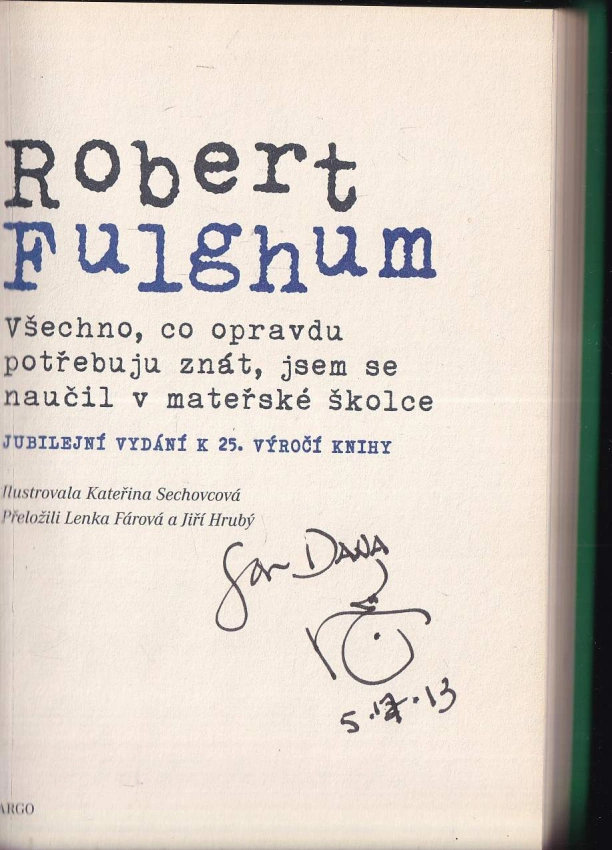 Robert
Fulghum
Všechno, co opravdu
potřebuju znát, jsem se
naučil v mateřské školce
JUBILEJNÍ VYDÁNÍ K 25. VÝROČÍ KNIHY
Ilustrovala Kateřina Sechovcová
Přeložili Lenka Fárová a Jiří Hrubý
for DANA
5.17.13
ARGO